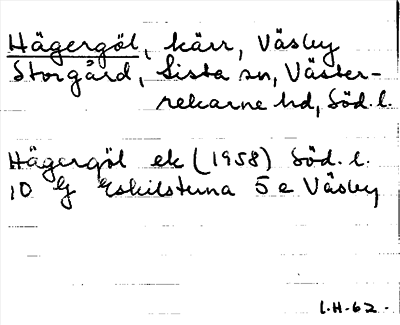 Hägergöl, kärr, Väsby
Storgård, Lista sn, Väster-
rekarne hd, Söd. l.
Hägergöl ek (1958) Söd. l.
10 G Eskilstuna 5 e Väsby
L.H-62-